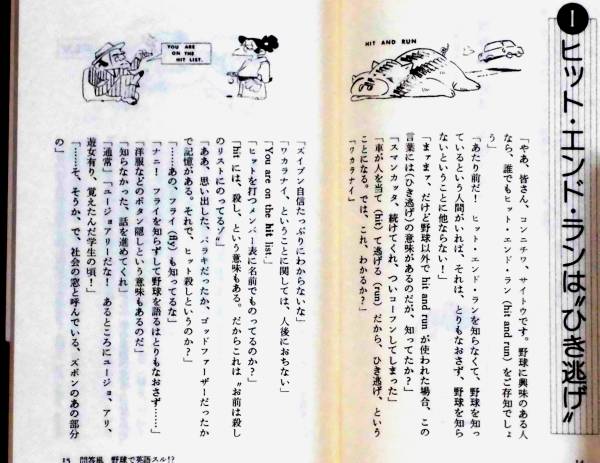 1
ヒット・エンド・ランは“ひき逃げ”
HIT AND RUN
「やあ、皆さん、コンニチワ、サイトウです。野球に興味のある人
なら、誰でもヒット・エンド・ラン(hit and run)をご存知でしょ
う」
「あたり前だ！　ヒット・エンド・ランを知らなくて、野球を知っ
ているという人間がいれば、それは、とりもなおさず、野球を知ら
ないということに他ならない！」
「まァまァ、だけど野球以外で hit and run が使われた場合、この
言葉には〈ひき逃げ〉の意味があるのだが、知ってたか？」
「スマンカッタ、続けてくれ、ついコーフンしてしまった」
「車が人を当て(hit)て逃げる(run)だから、ひき逃げ、という
ことになる。では、これ、わかるか？」
「ワカラナイ」
14
YOU ARE
ON THE
HIT LIST.
「ズイブン自信たっぷりにわからないな」
「ワカラナイ、ということに関しては、人後におちない」
「You are on the hit list.」
「ヒットを打つメンバー表に名前でものってるのか？」
「hit には、殺し、という意味もある。だからこれは“お前は殺し
のリストにのってるゾ”」
「ああ、思い出した、バラキだったか、ゴッドファーザーだったか
で記憶がある。それで、ヒット殺しというのか？」
「……あの、フライ(fly)も知ってるな」
「ナニ！　フライを知らずして野球を語るはとりもなおさず……」
「洋服などのボタン隠しという意味もあるのだ」
「知らなかった、話を進めてくれ」
「通常」「ユージョアリーだな！　あるところにユージョ、アリ、
遊女有り、覚えたんだ学生の頃！」
「……そ、そうか、で、社会の窓と呼んでいる、ズボンのあの部分
の」
15　問答風　野球で英語スル!?